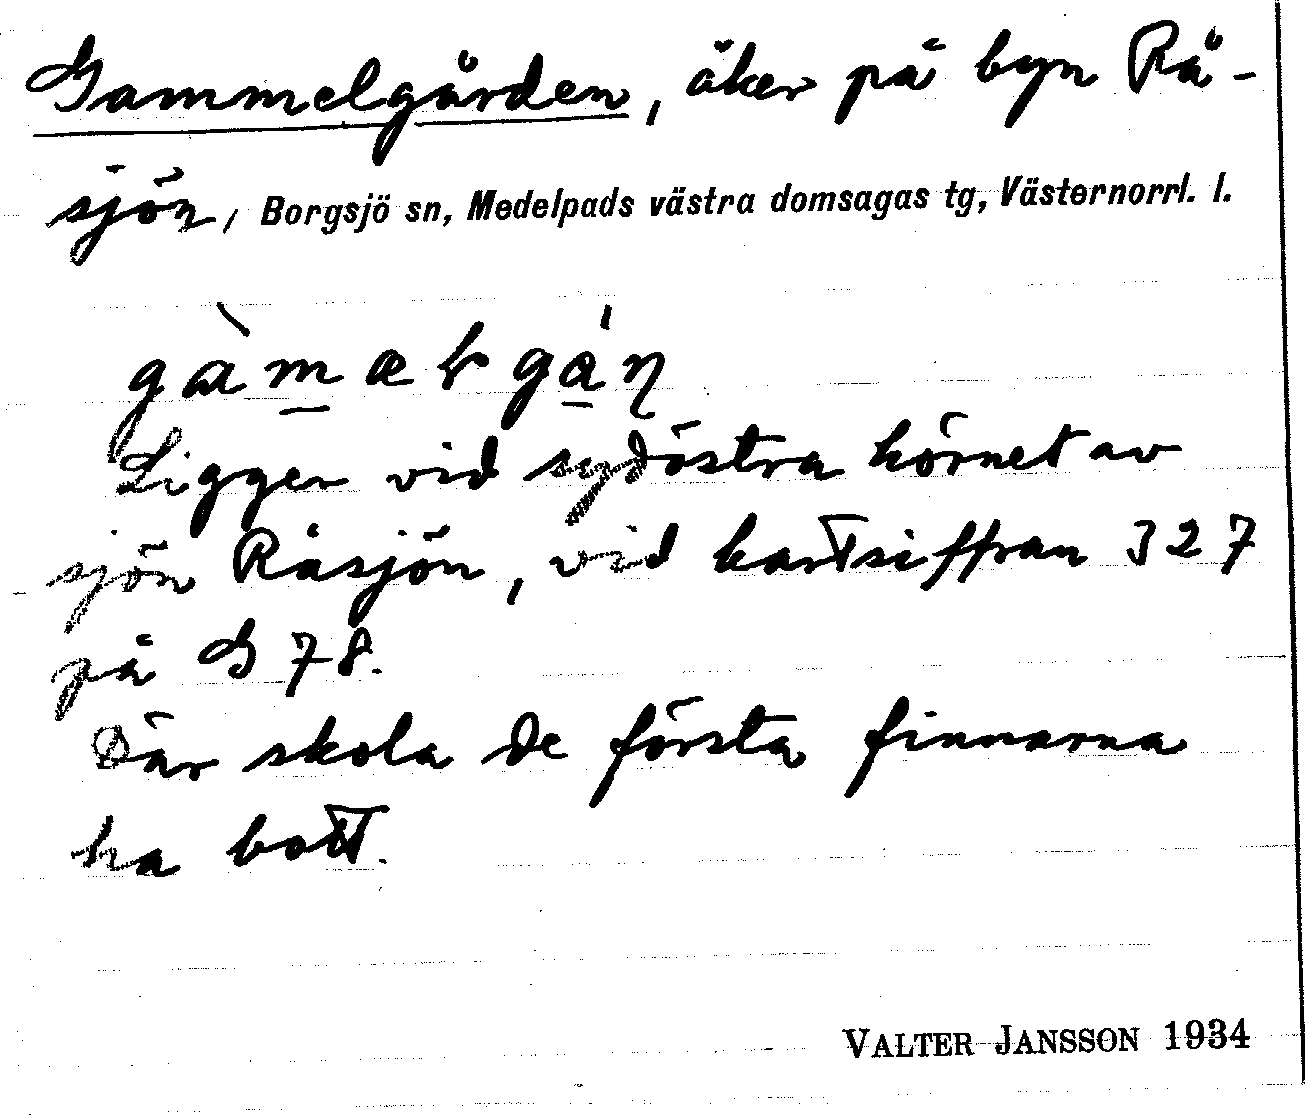 Gammelgården, åker på byn Rå-
sjön, Borgsjö sn, Medelpads västra domsagas tg, Västernorrl. l.
Ligger vid sydöstra hörnet av
sjön Råsjön, vid kartsiffran 327
på G 78.
Där skola de första finnarna
ha bott.
VALTER JANSSON 1934